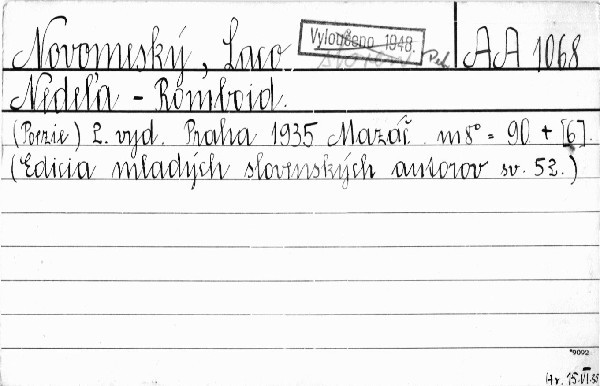 Novomeský, Laco
Vyloučeno 1948.
AA 1068
Nedeľa - Romboid.
(Poezie) 2. vyd. Praha 1935 Mazáč. m8° = 90 + [6].
(Edicia mladých slovenských autorov sv. 52.)
*9002
Hr. 15.VI.35